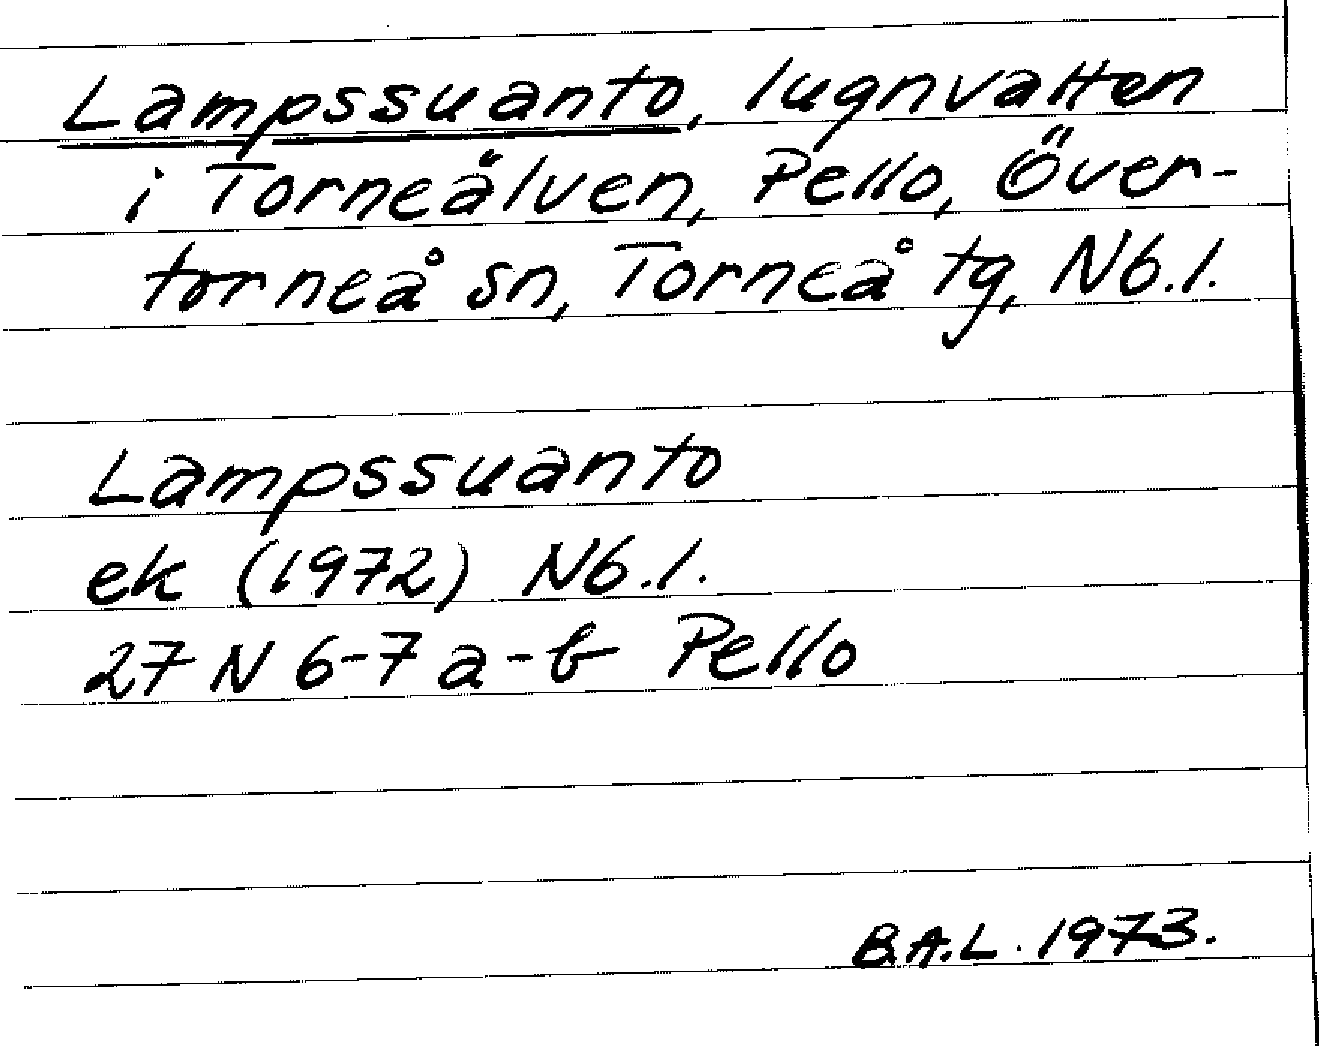 Lampssuanto, lugnvatten
i Torneälven, Pello, Över-
torneå sn, Torneå tg, Nb.l.
Lampssuanto
ek (1972) Nb.l.
27 N 6-7 a-b Pello
B.A.L. 1973.